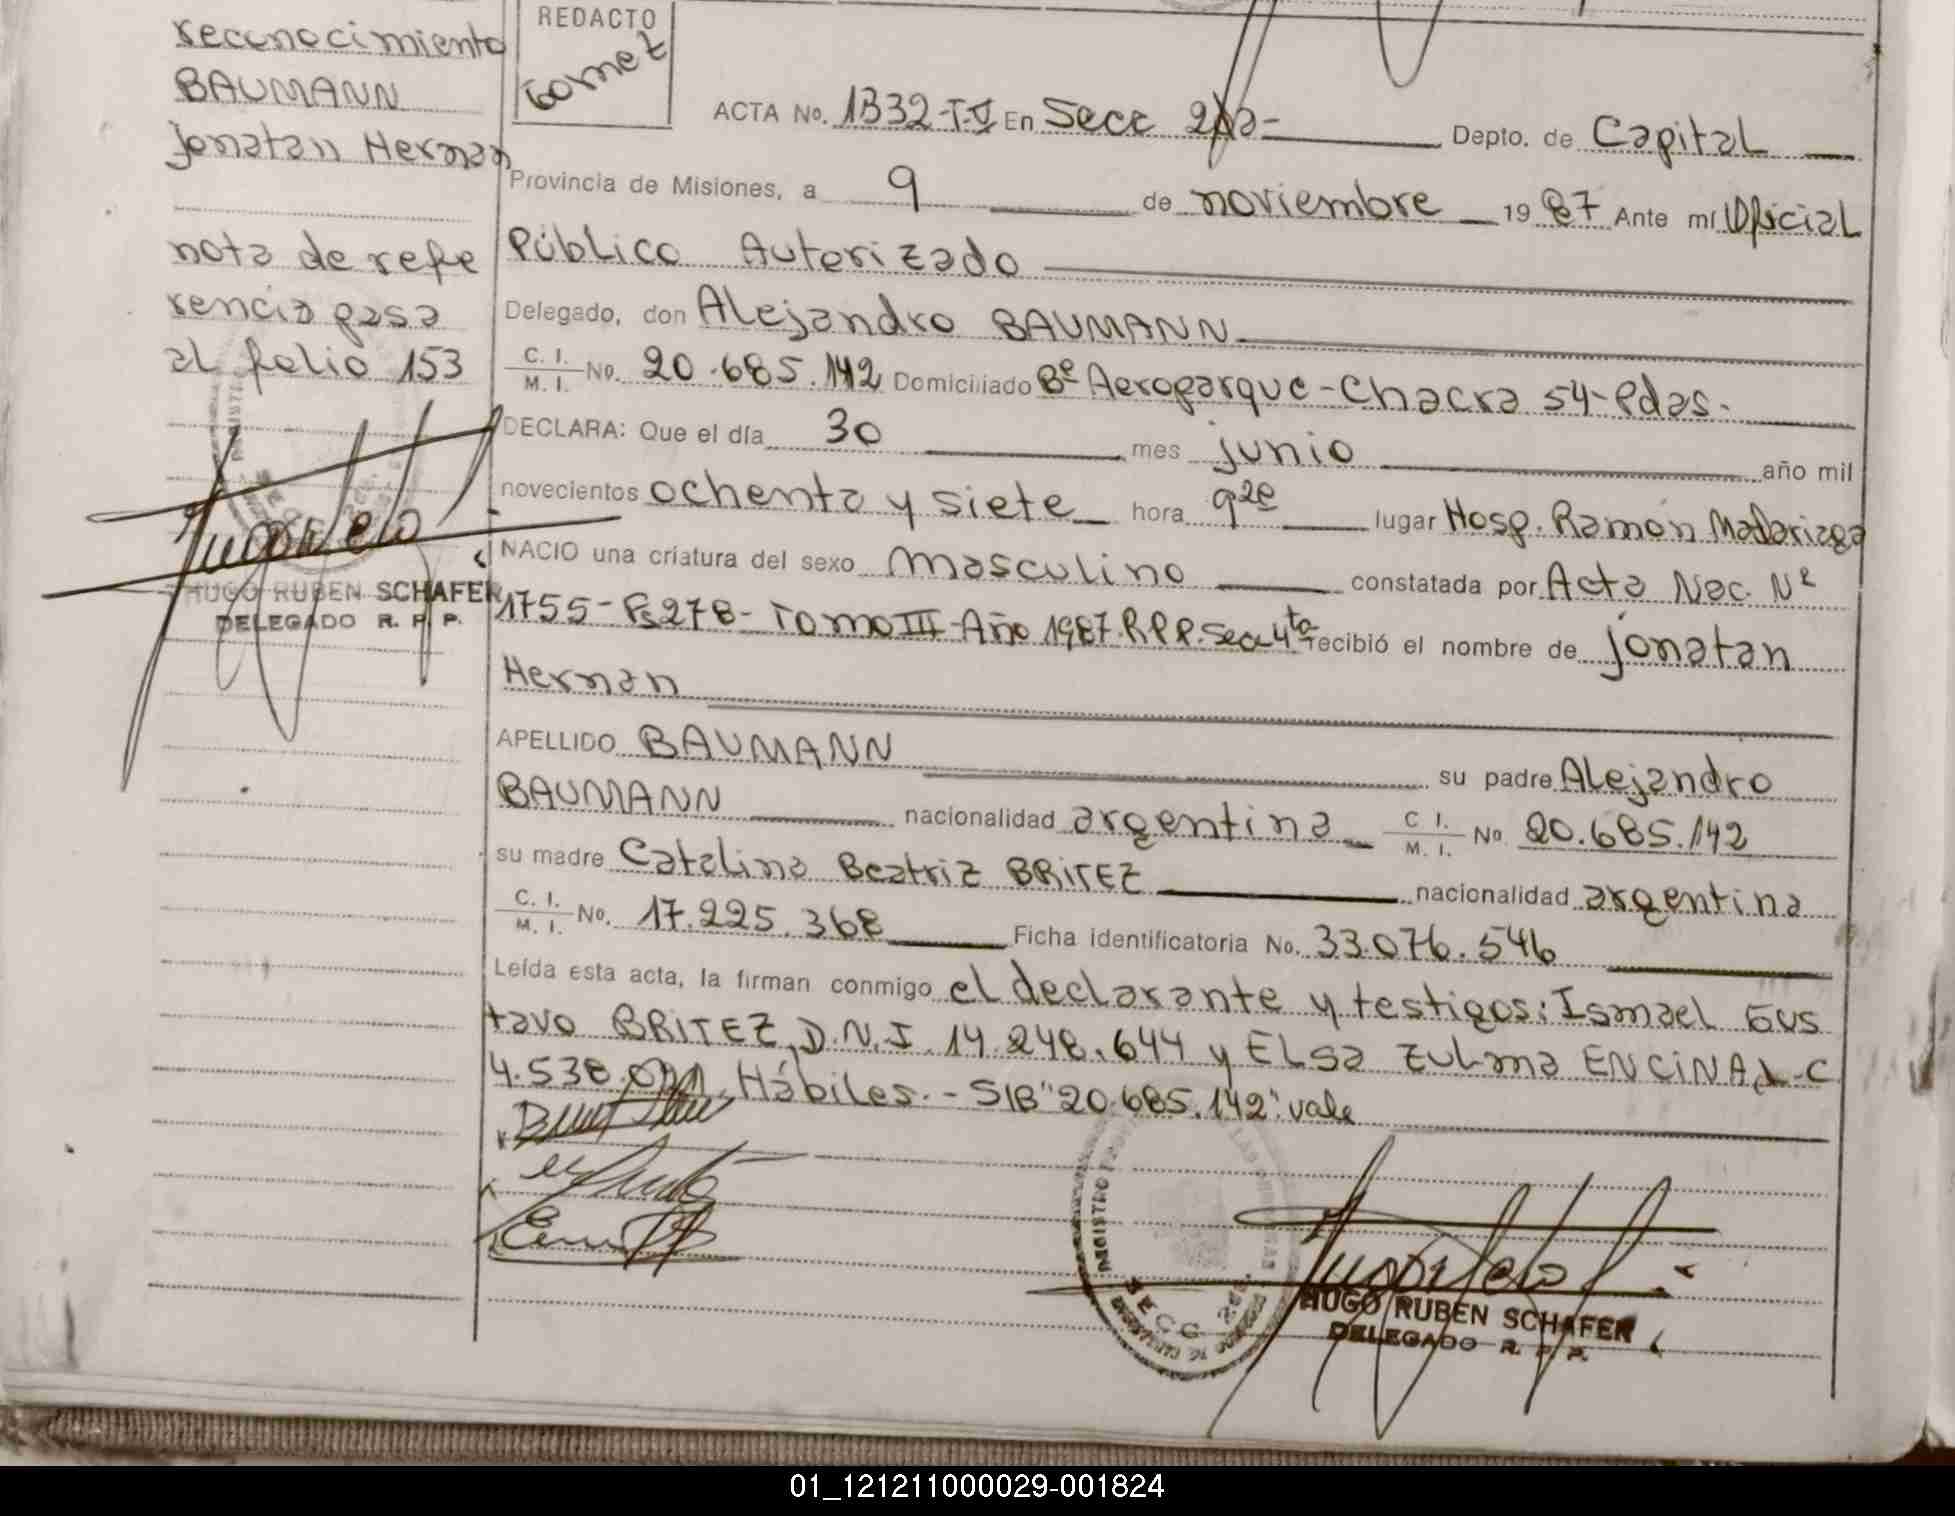 reconocimiento
BAUMANN
Jonatan Hernan
nota de refe
rencia pasa
al folio 153
HUGO RUBEN SCHAFER
DELEGADO R. P. P.
REDACTO
Gomez
ACTA No. 1332-T-V En Secc 2da- Depto. de Capital
Provincia de Misiones, a 9 de noviembre 19 87 Ante mí Oficial
Público Autorizado
Delegado, don Alejandro BAUMANN
C. I. / M. I. No. 20.685.142 Domiciliado Bº Aeroparque-Chacra 54-Pdas.
DECLARA: Que el día 30 mes junio año mil
novecientos ochenta y siete hora 9 20 lugar Hosp. Ramón Madariaga
NACIO una criatura del sexo masculino constatada por Acta Nac. Nº
1755-Fs278-Tomo III-Año 1987.R.P.P.Secc 4ta recibió el nombre de Jonatan
Hernan
APELLIDO BAUMANN su padre Alejandro
BAUMANN nacionalidad argentina C I. / M. I. No 20.685.142
su madre Catalina Beatriz BRITEZ nacionalidad argentina
C. I. / M. I. No. 17.225.368 Ficha identificatoria No. 33.076.546
Leída esta acta, la firman conmigo el declarante y testigos: Ismael Gus
tavo BRITEZ, D.N.I 14.248.644 y ELSa Zulma ENCINA, L.C
4.538. Hábiles.- S/B "20.685.142" vale
SECC 2da
HUGO RUBEN SCHAFER
DELEGADO R. P. P.
01_121211000029-001824